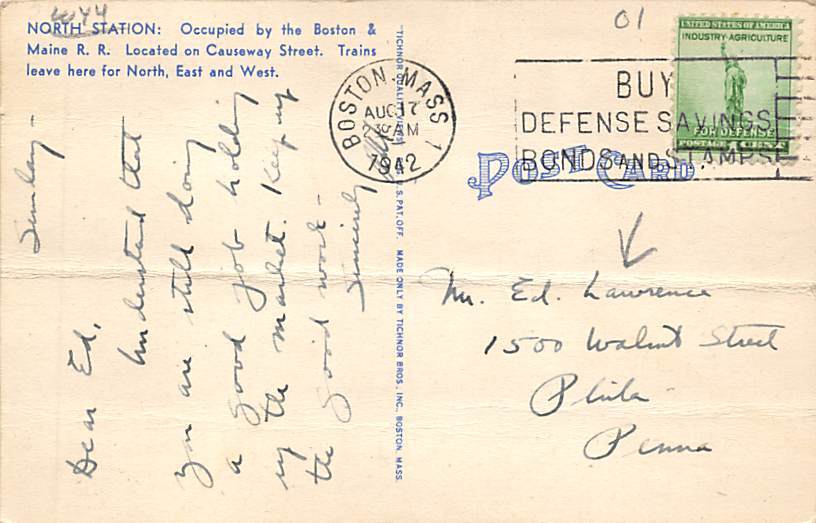 W44
01
NORTH STATION: Occupied by the Boston &
Maine R. R. Located on Causeway Street. Trains
leave here for North, East and West.
Sunday -
Dear Ed,
Understand that
you are still doing
a good job holding
up the market. Keep up
the good work -
Sincerely
"TICHNOR QUALITY VIEWS" REG. U.S. PAT. OFF. MADE ONLY BY TICHNOR BROS., INC., BOSTON, MASS.
BOSTON, MASS 1
AUG 17
230 AM
1942
BUY
DEFENSE SAVINGS
BONDS AND STAMPS
UNITED STATES OF AMERICA
INDUSTRY·AGRICULTURE
FOR DEFENSE
POSTAGE 1 CENT
POST CARD
Mr. Ed. Lawrence
1500 Walnut Street
Phila
Penna